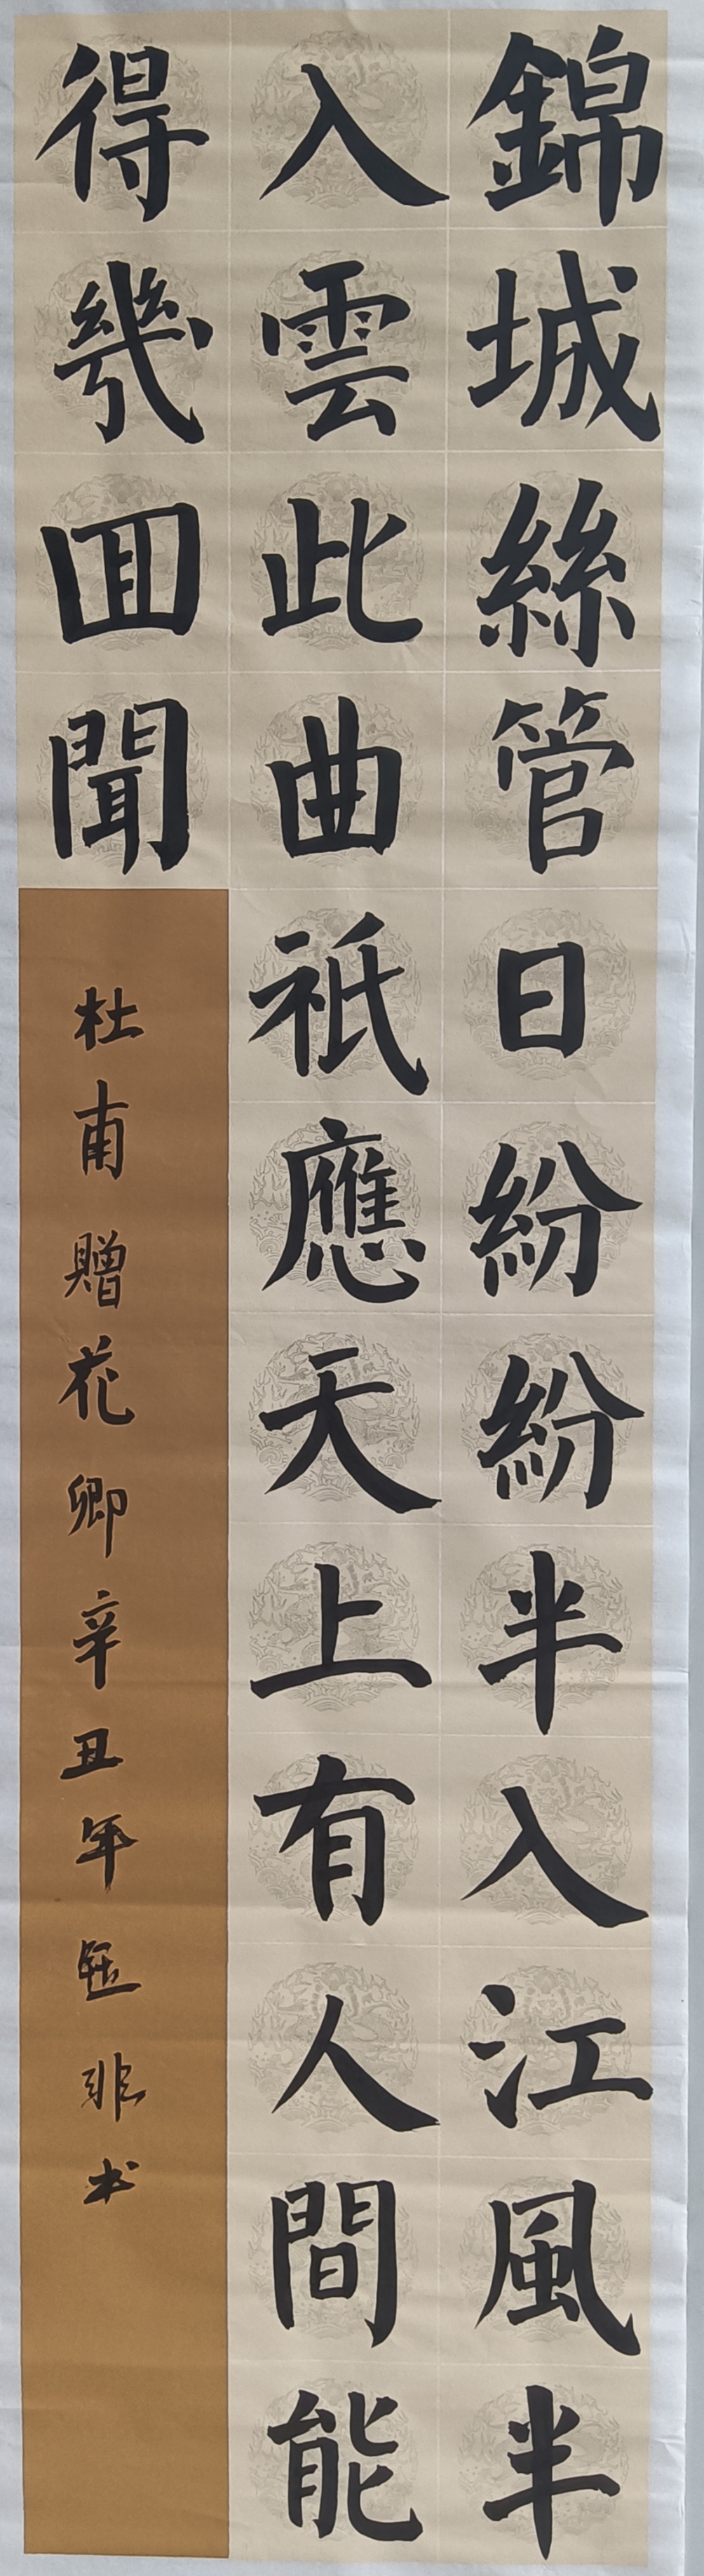 錦城絲管日紛紛半入江風半
入雲此曲祇應天上有人間能
得幾回聞
杜甫贈花卿辛丑年 非书